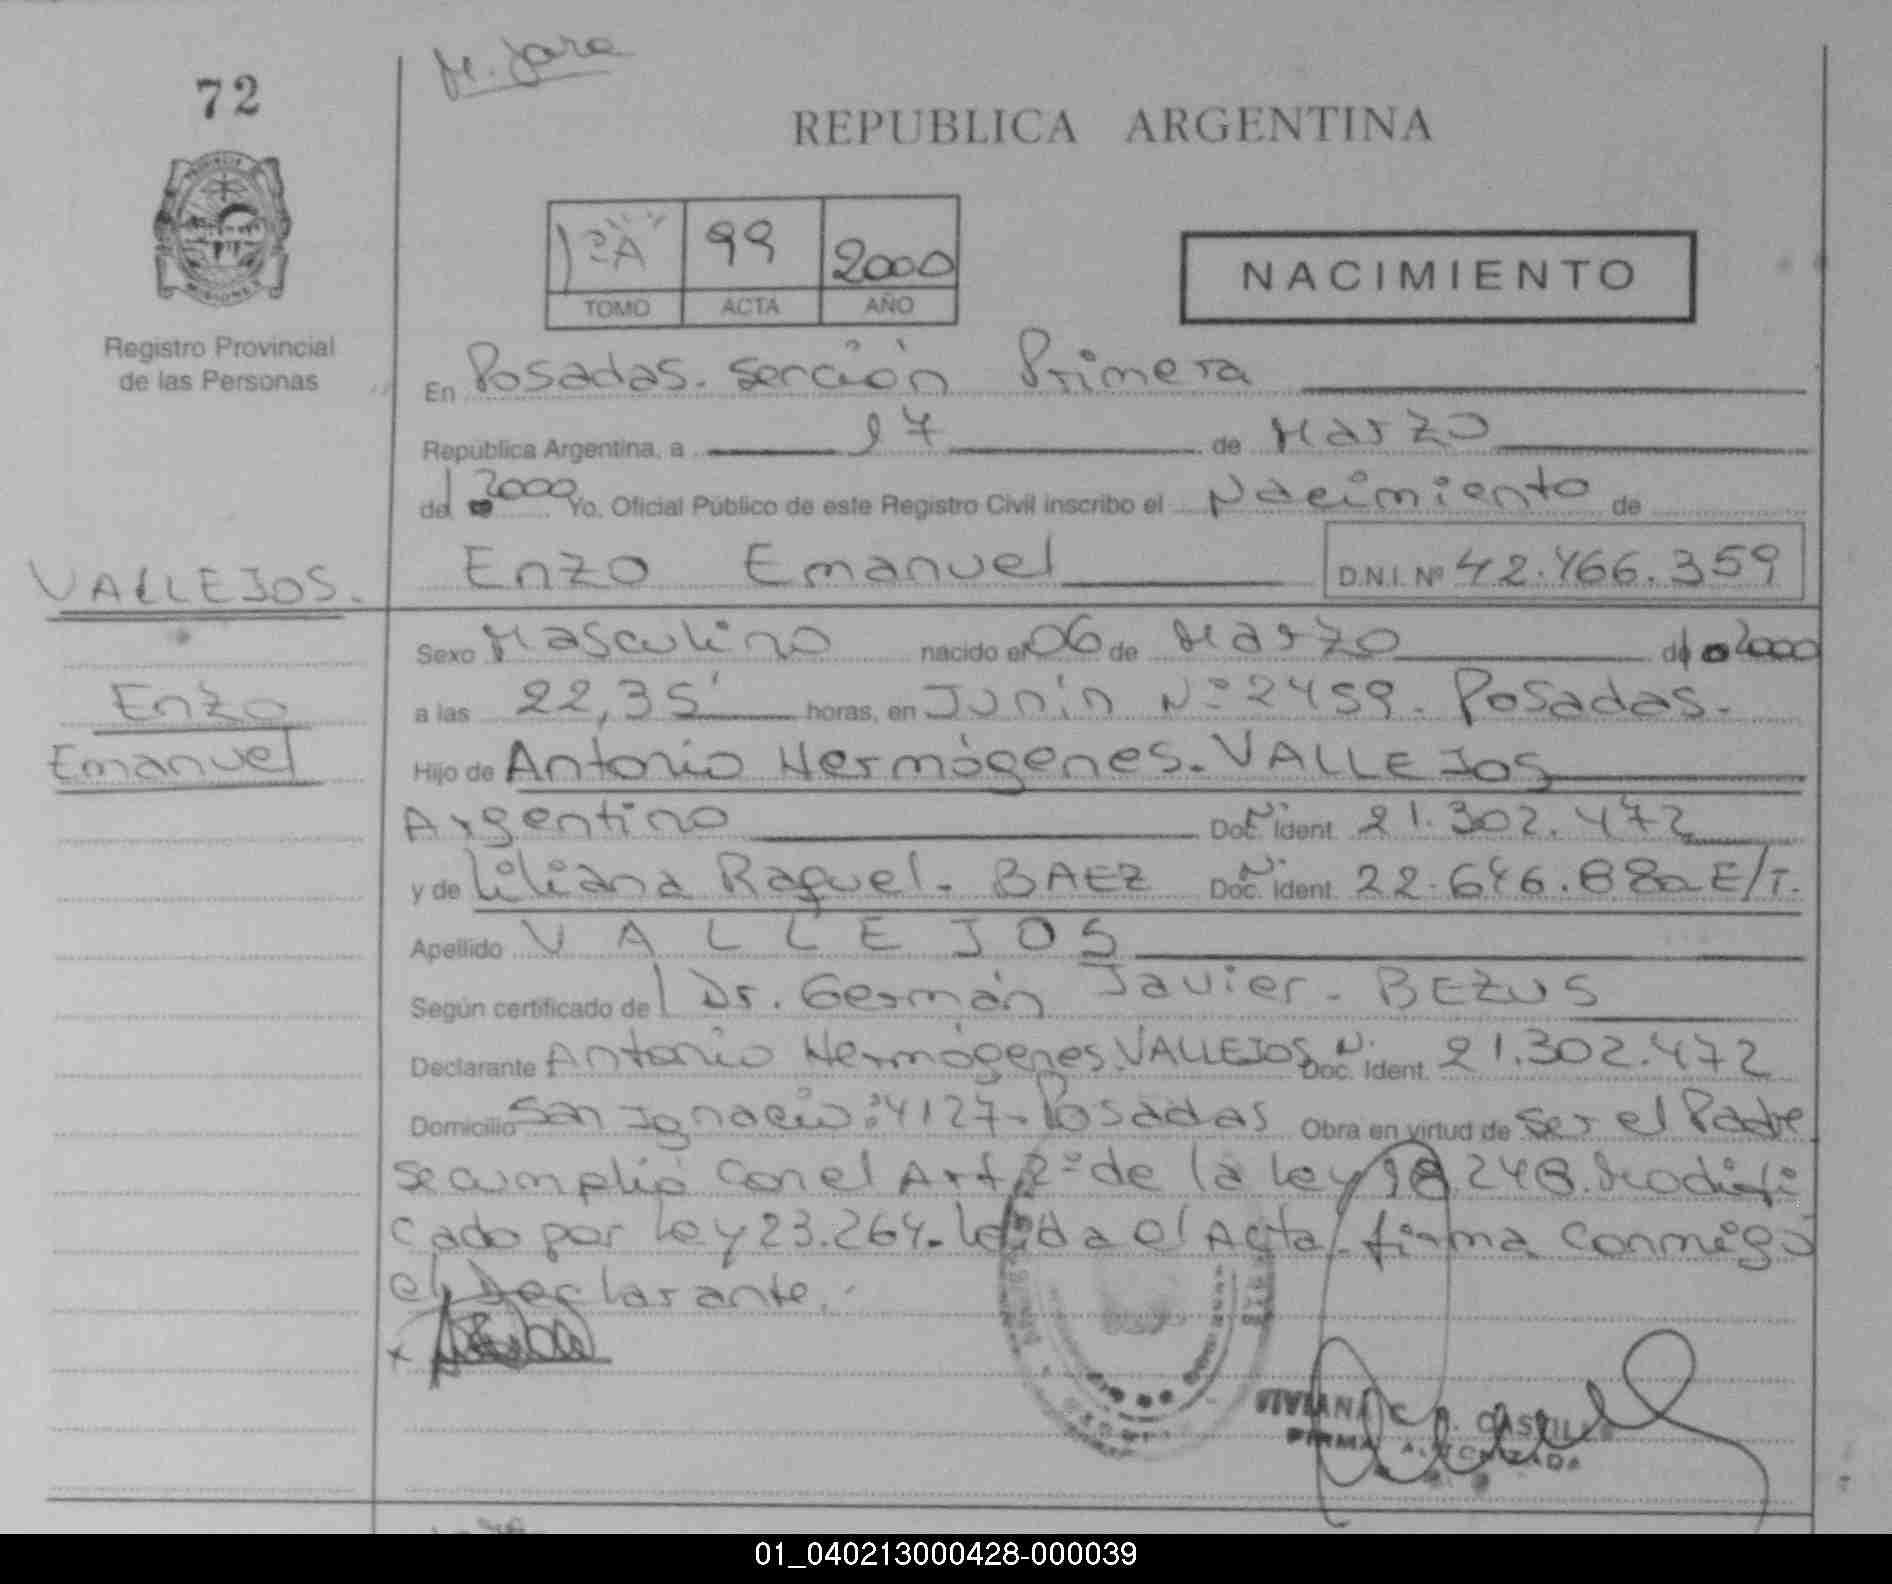 72
M. Jara
REPUBLICA ARGENTINA
1ºA 99 2000
TOMO ACTA AÑO
NACIMIENTO
Registro Provincial
de las Personas
En Posadas. sección Primera
República Argentina, a 17 de Marzo
del 2000 Yo, Oficial Público de este Registro Civil inscribo el Nacimiento de
Enzo Emanuel D.N.I. Nº 42.466.359
VALLEJOS.
Enzo
Emanuel
Sexo Masculino nacido el 06 de Marzo del 2000
a las 22,35' horas, en Junín Nº 2459. Posadas.
Hijo de Antonio Hermógenes. VALLEJOS
Argentino Doc. Ident. Nº 21.302.472
y de Liliana Raquel. BAEZ Doc. Ident. Nº 22.646.880 E/T.
Apellido VALLEJOS
Según certificado del Dr. Germán Javier. BEZUS
Declarante Antonio Hermógenes. VALLEJOS Nº Doc. Ident. 21.302.472
Domicilio San Ignacio: 4127. Posadas Obra en virtud de ser el Padre
se cumplió con el Art 2º de la Ley 18.248. Modifi
cado por Ley 23.264. Leida el Acta. firma conmigo
el Declarante.
x
VIVIANA C. CASTILL
FIRMA AUTORIZADA
01_040213000428-000039